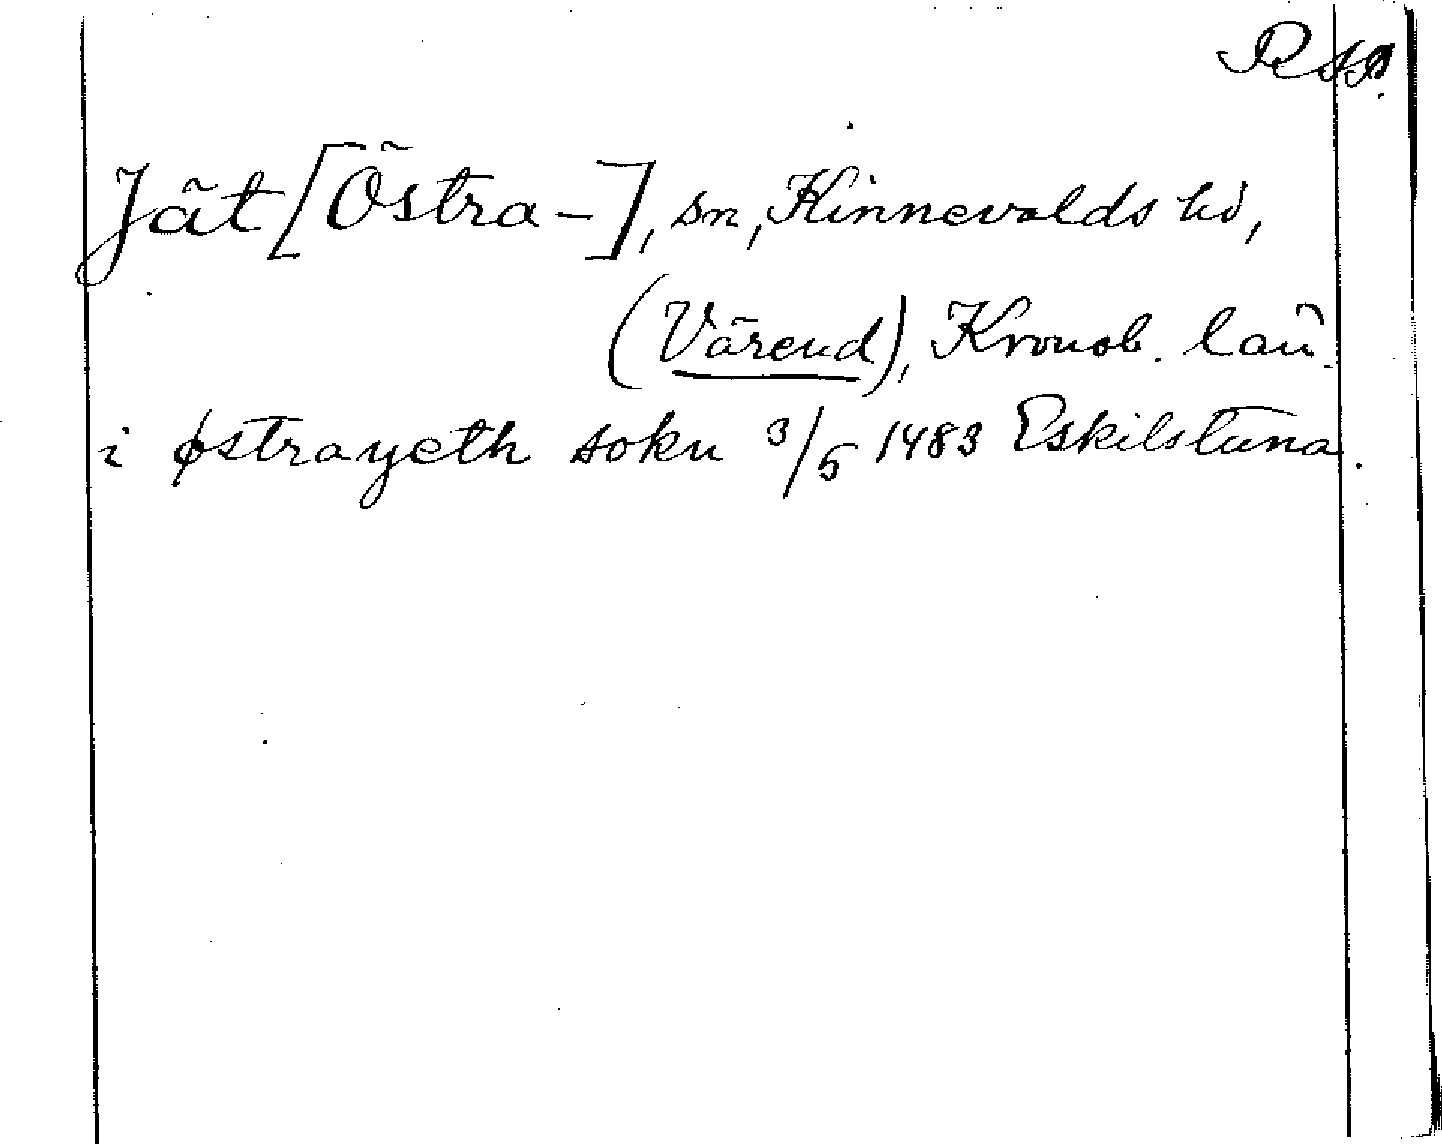 Jät [Östra -], sn, Kinnevalds hd,
(Värend), Kronob. län
i østrayeth sokn 3/5 1483 Eskilstuna.